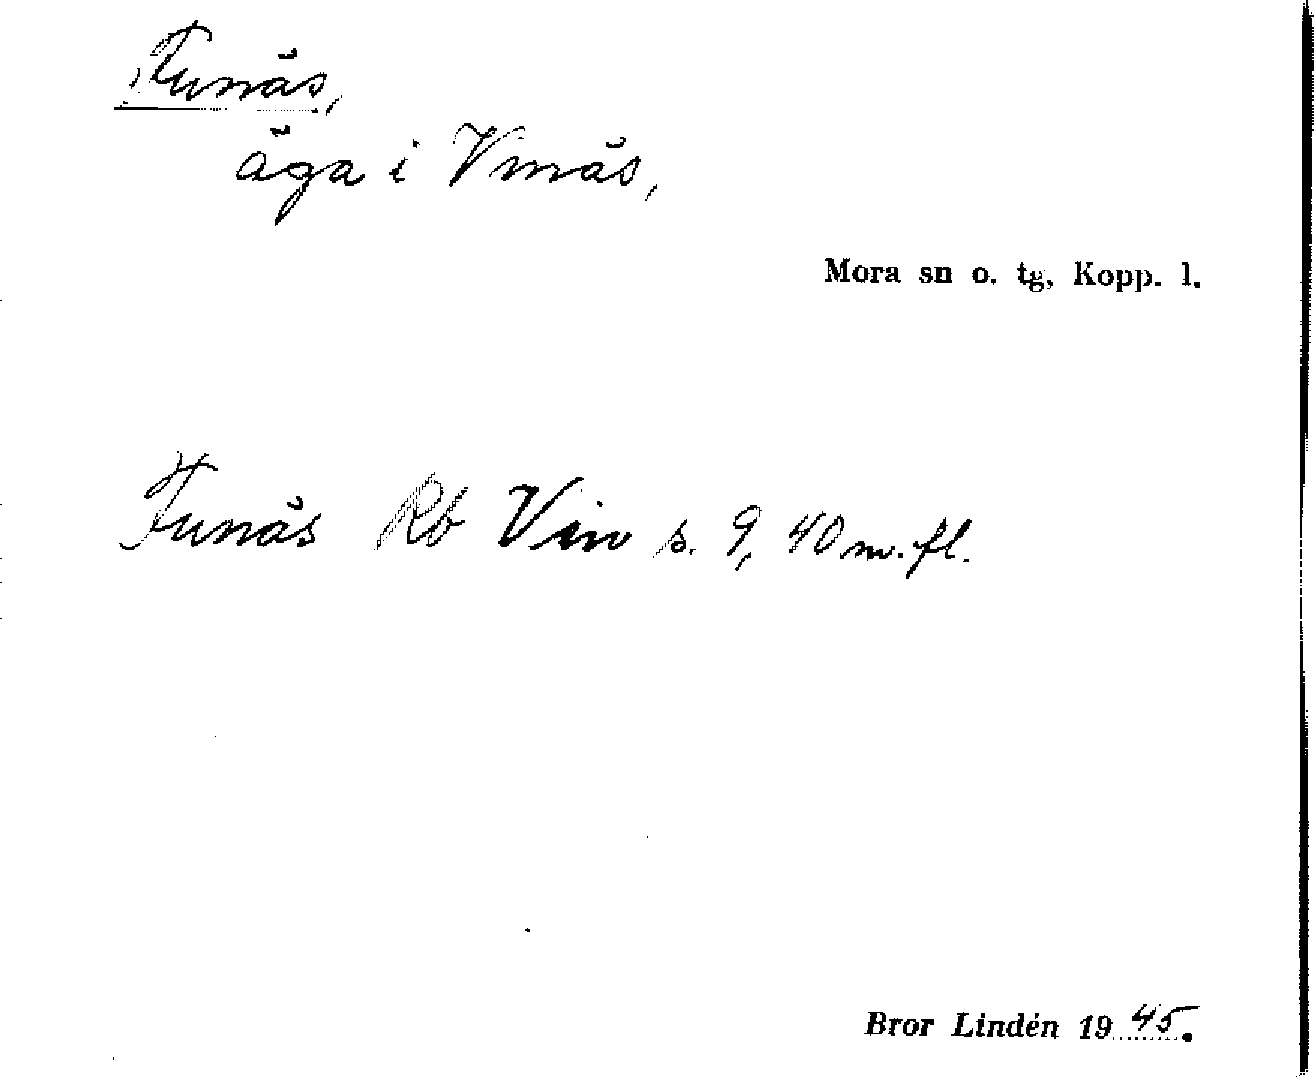 Funäs,
äga i Vinäs,
Mora sn o. tg, Kopp. l.
Funäs Rb Vin s. 9, 40 m. fl.
Bror Lindén 1945.